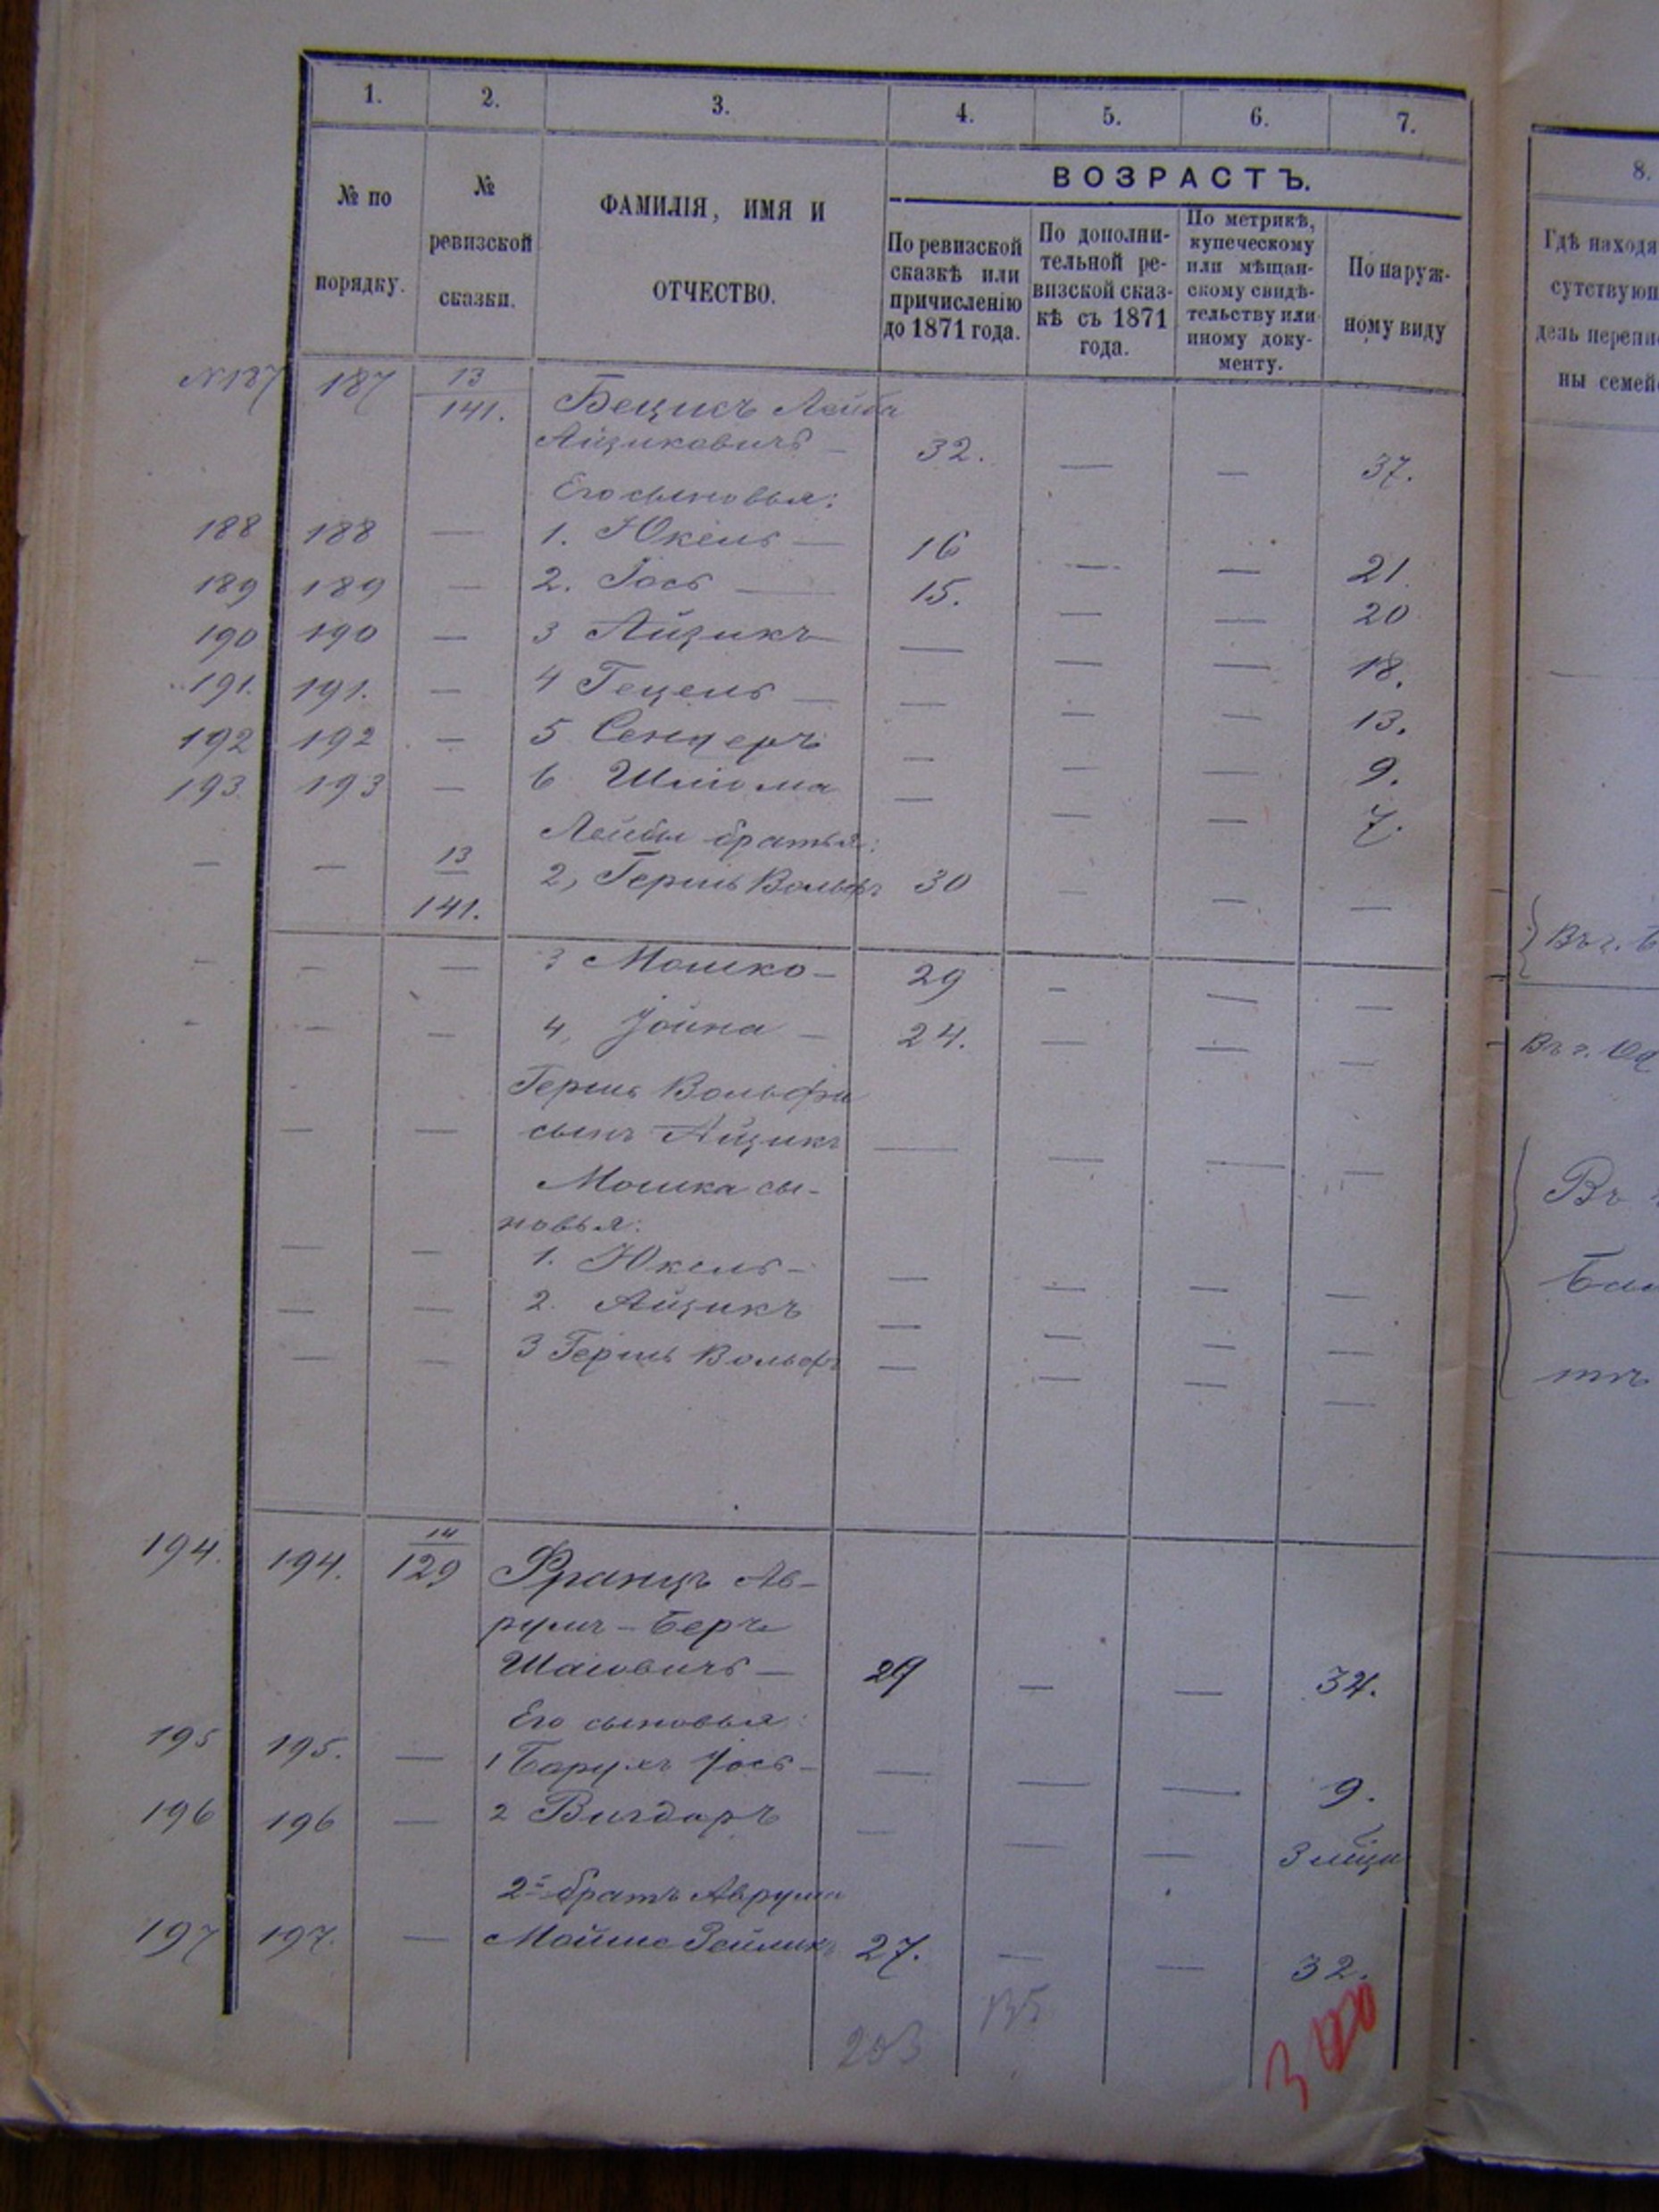 1. 2. 3. 4. 5. 6. 7.
№ по порядку.
№ ревизской сказки.
ФАМИЛІЯ, ИМЯ И ОТЧЕСТВО.
ВОЗРАСТЪ.
По ревизской сказкѣ или причисленію до 1871 года.
По дополни-
тельной ре-
визской сказ-
кѣ съ 1871
года.
По метрикѣ,
купеческому
или мѣщан-
скому свидѣ-
тельству или
иному доку-
менту.
По наруж-
ному виду
8.
Гдѣ находя
сутствующ
дель перепи
ны семей
№187 187 13/141. Бецикъ Лейба
Айзиковичъ — 32. — — 37.
Его сыновья:
188 188 — 1. Юкель — 16 — — 21.
189 189 — 2. Іось — 15. — — 20
190 190 — 3 Айзикъ — — — 18.
191. 191. — 4 Гецель — — — — 13.
192 192 — 5 Сендеръ — — — 9.
193. 193 — 6 Шлиома — — — 7.
Лейбы братья:
— — 13/141. 2, Гершь Вольфъ 30 — — —
— — — 3 Мошко — 29 — — —
- — — 4, Іойна — 24. — — —
Гершь Вольфа
— — сынъ Айзикъ — — — —
Мошка сы-
новья:
— — 1. Юкель — — — — —
— — 2. Айзикъ — — — —
— — 3 Гершь Вольфъ — — — —
Въ г.
Въ г.
Въ
194. 194. 14/129 Францъ Ав-
румъ-Беръ
Шаиовичъ — 29 — — 34.
Его сыновья:
195 195. — 1 Барухъ Іось — — — — 9.
196 196 — 2 Вигдоръ — — — 3 мѣца
2й братъ Аврума
197 197. — Мойше Зейликъ 27. — — 32.
203 135